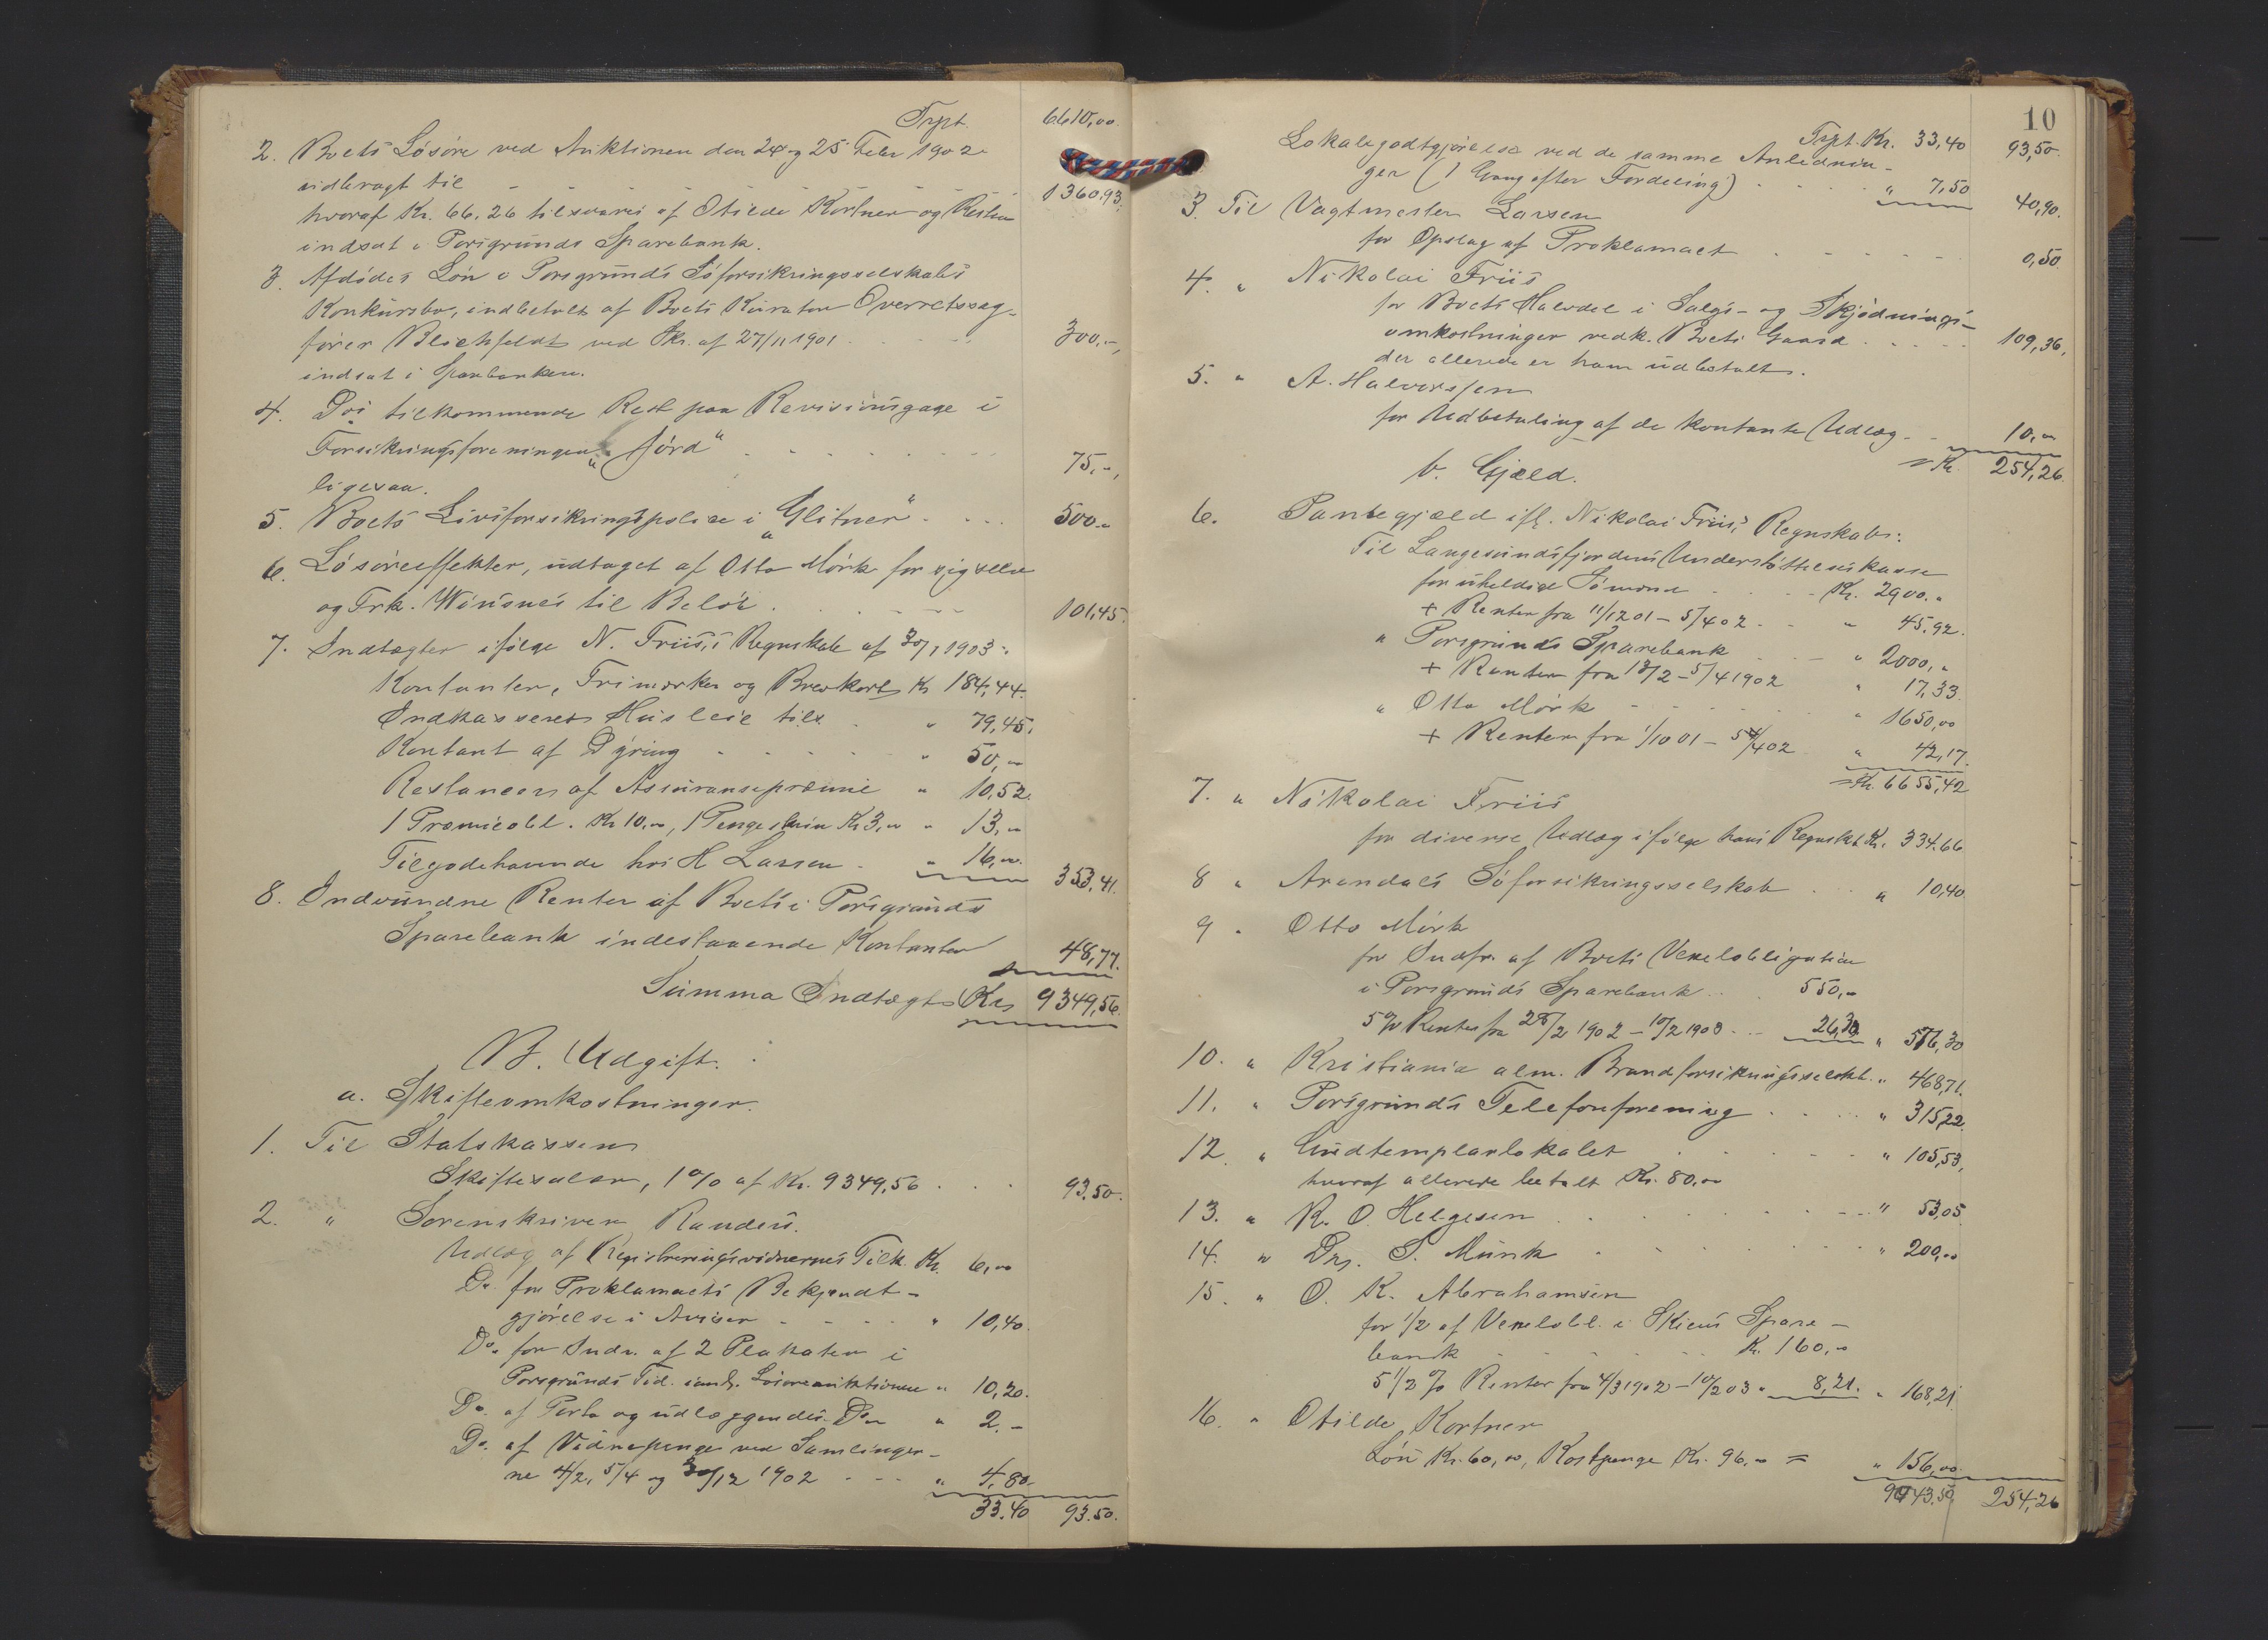 Trpt. 6610,00.
2. Boets Løsøre ved Auktionen den 24 og 25 Febr 1902
udbragt til - - - - - - 1360.93.
hvoraf Kr. 66,26 tilsvares af Otilde Kortner og Resten
indsat i Porsgrunds Sparebank.
3. Afdødes Løn i Porsgrunds Søforsikringsselskabs
Konkursbo, indbetalt af Boets Kurator Overretssag-
fører Blechfeldt ved Skr. af 27/11 1901 . . . . 300,-,
indsat i Sparebanken.
4. Do's tilkommende Rest paa Revisionsgage i
Forsikringsforeningen „Fjord" . . . . . . 75,-,
ligesaa.
5. Boets Livsforsikringspolise i „Glitner" . . . . 500.-
6. Løsøreeffekter, udtaget af Otto Mørk for sig selv
og Frk. Winsnes til Beløb . . . . . 101,45.
7. Indtægter ifølge N. Friis's Regnskab af 30/1 1903:
Kontanter, Frimærker og Brevkort Kr 184,44.
Indkasseret Husleie tils . „ 79,45.
Kontant af Dyring . . . . „ 50,-
Restancen af Assuransepræmie „ 10,52.
1 Præmieobl. Kr 10,00, 1 Pengeskrin Kr 3,00 „ 13,00
Tilgodehavende hos H Larsen . „ 16,00. 353,41.
8. Indvundne Renter af Boets i Porsgrunds
Sparebank indestaaende Kontanter 48,77.
Summa Indtægt Kr 9349,56.
B. Udgift.
a. Skifteomkostninger.
1. Til Statskassen
Skiftesalær, 1% af Kr. 9349,56 . . . 93,50.
2. „ Sorenskriver Randers.
Udlæg af Registreringsvidnernes Tilk. Kr. 6,00
Do. for Proklamaets Bekjendt-
gjørelse i Aviser - - - - „ 10,40.
Do. for Indr. af 2 Plakater i
Porsgrunds Tid. i anl. Løsøreauktionen „ 10,20.
Do. af Porto og udlæggendes Do „ 2.-
Do. af Vidnepenge ved Samlinger-
ne 4/2, 5/4 og 30/12 1902 - - - „ 4,80.
33.40 93.50.
10
Trpt. Kr. 33,40 93,50.
Lokalegodtgjørelse ved de samme Anlednin-
ger (1 Gang efter Fordeling) . . . . „ 7,50 40,90.
3. Til Vagtmester Larsen
for Opslag af Proklamaet . . . . . 0,50
4. „ Nikolai Friis
for Boets Halvdel i Salgs- og Skjødnings-
omkostninger vedk. Boets Gaard . . . . . 109,36,
der allerede er ham udbetalt.
5. „ A. Halvorsen
for Udbetaling af de kontante Udlæg - - 10,00
= Kr. 254,26.
b. Gjæld.
6. Pantegjæld ifl. Nikolai Friis's Regnskab:
Til Langesundsfjordens Understøttelseskasse
for uheldige Sømænd . . . . Kr. 2900.„
+ Renter fra 11/12 01 - 5/4 02 - - „ 45,92.
„ Porsgrunds Sparebank . - - „ 2000,„
+ Renter fra 13/2 - 5/4 1902 „ 17,33.
„ Otto Mørk - - - - - - „ 1650,00
+ Renter fra 1/10 01 - 5/4 02 „ 42,17.
= Kr. 6655,42
7. „ Nikolai Friis
for diverse Udlæg ifølge hans Regnskab Kr. 334.66
8 „ Arendals Søforsikringsselskab . . „ 10,40
9 „ Otto Mørk
for Indfr. af Boets Vexelobligation
i Porsgrunds Sparebank . . 550,00
5 % Renter fra 28/2 1902 - 10/2 1903 . . 26,30 „ 576,30
10. „ Kristiania alm. Brandforsikringsselskb. „ 468,71.
11. „ Porsgrunds Telefonforening . . . . „ 315,22.
12. „ Godtemplarlokalet . . . . „ 105,53,
hvoraf allerede betalt Kr. 80,00
13. „ K. O. Helgesen . . . . . . „ 53,05
14. „ Drs. S. Munk . . . . „ 200,00
15. „ O. K. Abrahamsen
for 1/2 af Vexelobl. i Skiens Spare-
bank . . . . . . Kr. 160,00
5 1/2 % Renter fra 4/3 1902 - 10/2 03 „ 8,21. „ 168,21.
16. „ Otilde Kortner
Løn Kr. 60,00, Kostpenge Kr. 96,00 = „ 156,00.
9043,50, 254,26